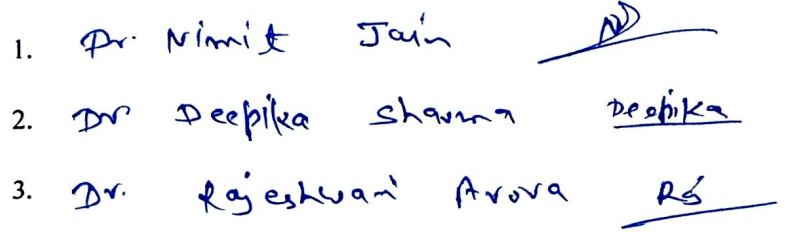 1. Dr. Nimit Jain
2. Dr Deepika Sharma Deepika
3. Dr. Rajeshwari Arora RS